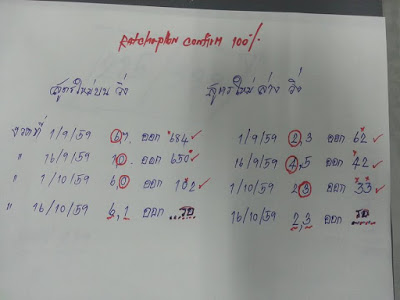 Ratchaplon confirm 100%
สูตรใหม่บน วิ่ง สูตรใหม่ล่าง วิ่ง
งวดที่ 1/9/59 67. ออก 684 ✓ 1/9/59 2,3 ออก 62 ✓
" 16/9/59 10. ออก 650 ✓ 16/9/59 4,5 ออก 42 ✓
" 1/10/59 60 ออก 102 ✓ 1/10/59 23 ออก 33 ✓
" 16/10/59 6,1 ออก ...รอ 16/10/59 2,3 ออก รอ